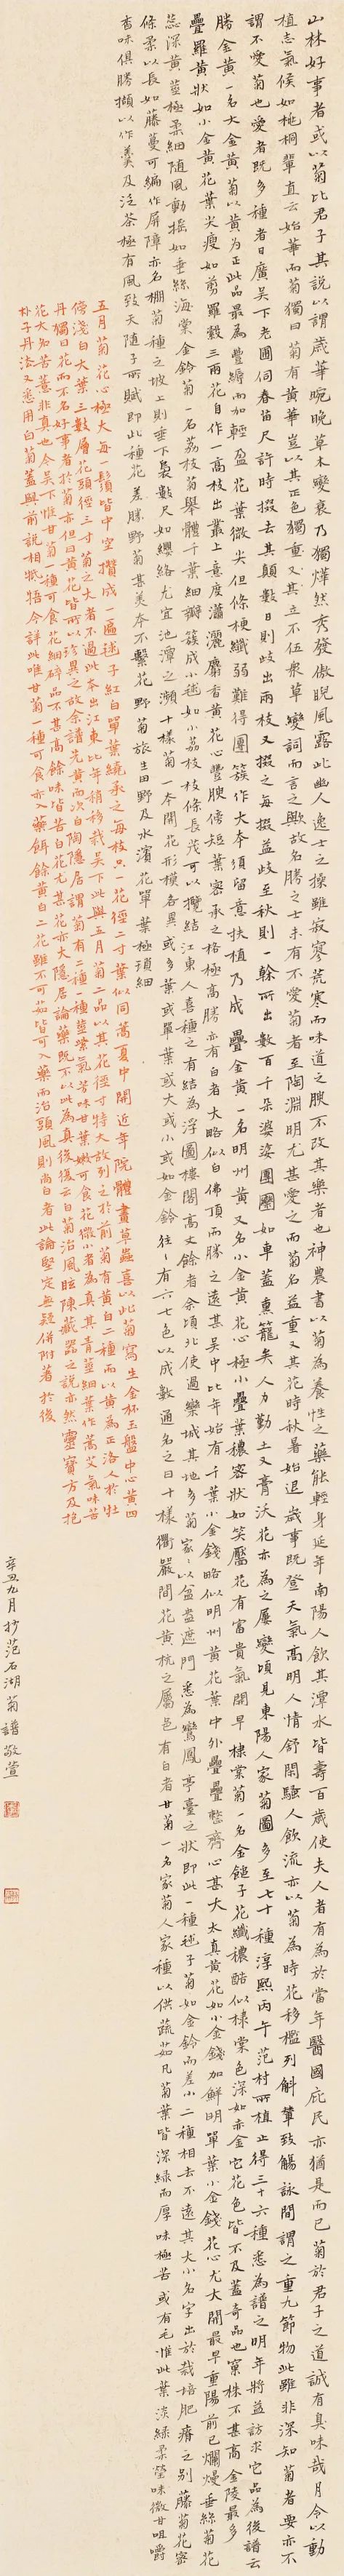 山林好事者或以菊比君子其說以謂歲華晼晚草木變衰乃獨燁然秀發傲睨風露此幽人逸士之操雖寂寥荒寒而味道之腴不改其樂者也神農書以菊為養性之藥能輕身延年南陽人飲其潭水皆壽百歲使夫人者有為於當年醫國庇民亦猶是而已菊於君子之道誠有臭味哉月令以動
植志氣候如桃桐輩直云始華而菊獨曰菊有黃華豈以其正色獨重又其立不伍眾草變詞而言之歟故名勝之士未有不愛菊者至陶淵明尤甚愛之而菊名益重又其花時秋暑始退歲事既登天氣高明人情舒閑騷人飲流亦以菊為時花移檻列斛輦致觴詠間謂之重九節物此雖非深知菊者要亦不
謂不愛菊也愛者既多種者日廣吳下老圃伺春苗尺許時掇去其顛數日則歧出兩枝又掇之每掇益歧至秋則一榦所出數百千朵婆娑團圞如車蓋熏籠矣人力勤土又膏沃花亦為之屢變頃見東陽人家菊圖多至七十種淳熙丙午范村所植止得三十六種悉為譜之明年將益訪求它品為後譜云
勝金黃一名大金黃菊以黃為正此品最為豐縟而加輕盈花葉微尖但條梗纖弱難得團簇作大本須留意扶植乃成 疊金黃一名明州黃又名小金黃花心極小疊葉穠密狀如笑靨花有富貴氣開早 棣棠菊一名金鎚子花纖穠酷似棣棠色深如赤金它花色皆不及蓋奇品也窠株不甚高金陵最多
疊羅黃狀如小金黃花葉尖瘦如剪羅縠三兩花自作一高枝出叢上意度瀟灑麝香黃花心豐腴傍短葉密承之格極高勝亦有白者大略似白佛頂而勝之遠甚吳中比年始有千葉小金錢略似明州黃花葉中外疊疊整齊心甚大太真黃花如小金錢加鮮明單葉小金錢花心尤大開最早重陽前已爛熳垂絲菊花
蕊深黃莖極柔細隨風動搖如垂絲海棠金鈴菊一名荔枝菊舉體千葉細瓣簇成小毬如小荔枝枝條長茂可以攬結江東人喜種之有結為浮圖樓閣高丈餘者余頃北使過欒城其地多菊家〻以盆盎遮門悉為鸞鳳亭臺之狀即此一種毬子菊如金鈴而差小二種相去不遠其大小名字出於栽培肥瘠之別藤菊花密
條柔以長如藤蔓可編作屏障亦名棚菊種之坡上則垂下裊數尺如纓絡尤宜池潭之瀕十樣菊一本開花形模各異或多葉或單葉或大或小或如金鈴往〻有六七色以成數通名之曰十樣衢嚴間花黃杭之屬邑有白者甘菊一名家菊人家種以供蔬茹凡菊葉皆深綠而厚味極苦或有毛惟此葉淡綠柔瑩味微甘咀嚼
香味俱勝擷以作羹及泛茶極有風致天隨子所賦即此種花差勝野菊甚美本不繫花野菊旅生田野及水濱花單葉極瑣細
五月菊花心極大每一鬚皆中空攢成一匾毬子紅白單葉繞承之每枝只一花徑二寸葉似同蒿夏中開近年院體畫草蟲喜以此菊寫生金杯玉盤中心黃四
傍淺白大葉三數層花頭徑三寸菊之大者不過此本出江東比年稍移栽吳下此與五月菊二品以其花徑寸特大故列之於前菊有黃白二種而以黃為正洛人於牡
丹獨曰花而不名好事者於菊亦但曰黃花皆所以珍異之故余譜先黃而次白陶隱居謂菊有二種一種莖紫氣香味甘葉嫩可食花微小者為真其青莖細葉作蒿艾氣味苦
花大名苦薏非真也今吳下惟甘菊一種可食花細碎品不甚高餘味皆苦白花尤甚花亦大隱居論藥既不以此為真後復云白菊治風眩陳藏器之說亦然靈寶方及抱
朴子丹法又悉用白菊蓋與前說相牴牾今詳此唯甘菊一種可食亦入藥餌餘黃白二花雖不可茹皆可入藥而治頭風則尚白者此論堅定無疑併附著於後
辛丑九月抄范石湖菊譜敬萱